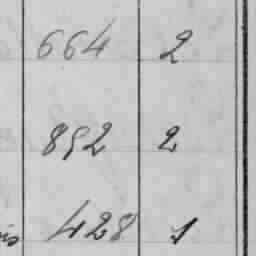 664 2
852 2
428 1